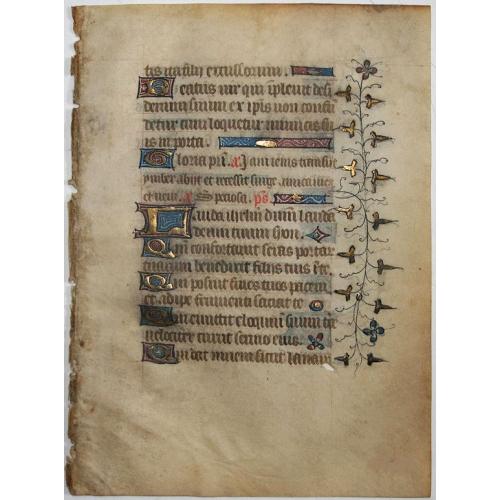 tis ita filii excussorum.
Beatus vir qui implevit desi
derium suum ex ipsis non confu
detur cum loquetur inimicis su
is in porta.
Gloria pri. a. Iam iems transiit
ymber abiit et recessit surge amica mea
et veni. a. Speciosa. ps.
Lauda iherlm dnm lauda
deum tuum syon.
Qm confortavit seras portar
tuarum benedixit filiis tuis i te.
Qui posuit fines tuos pacem
et adipe frumenti satiat te
Qui emittit eloquium suum tre
velociter currit sermo eius.
Qui dat nivem sicut lanam